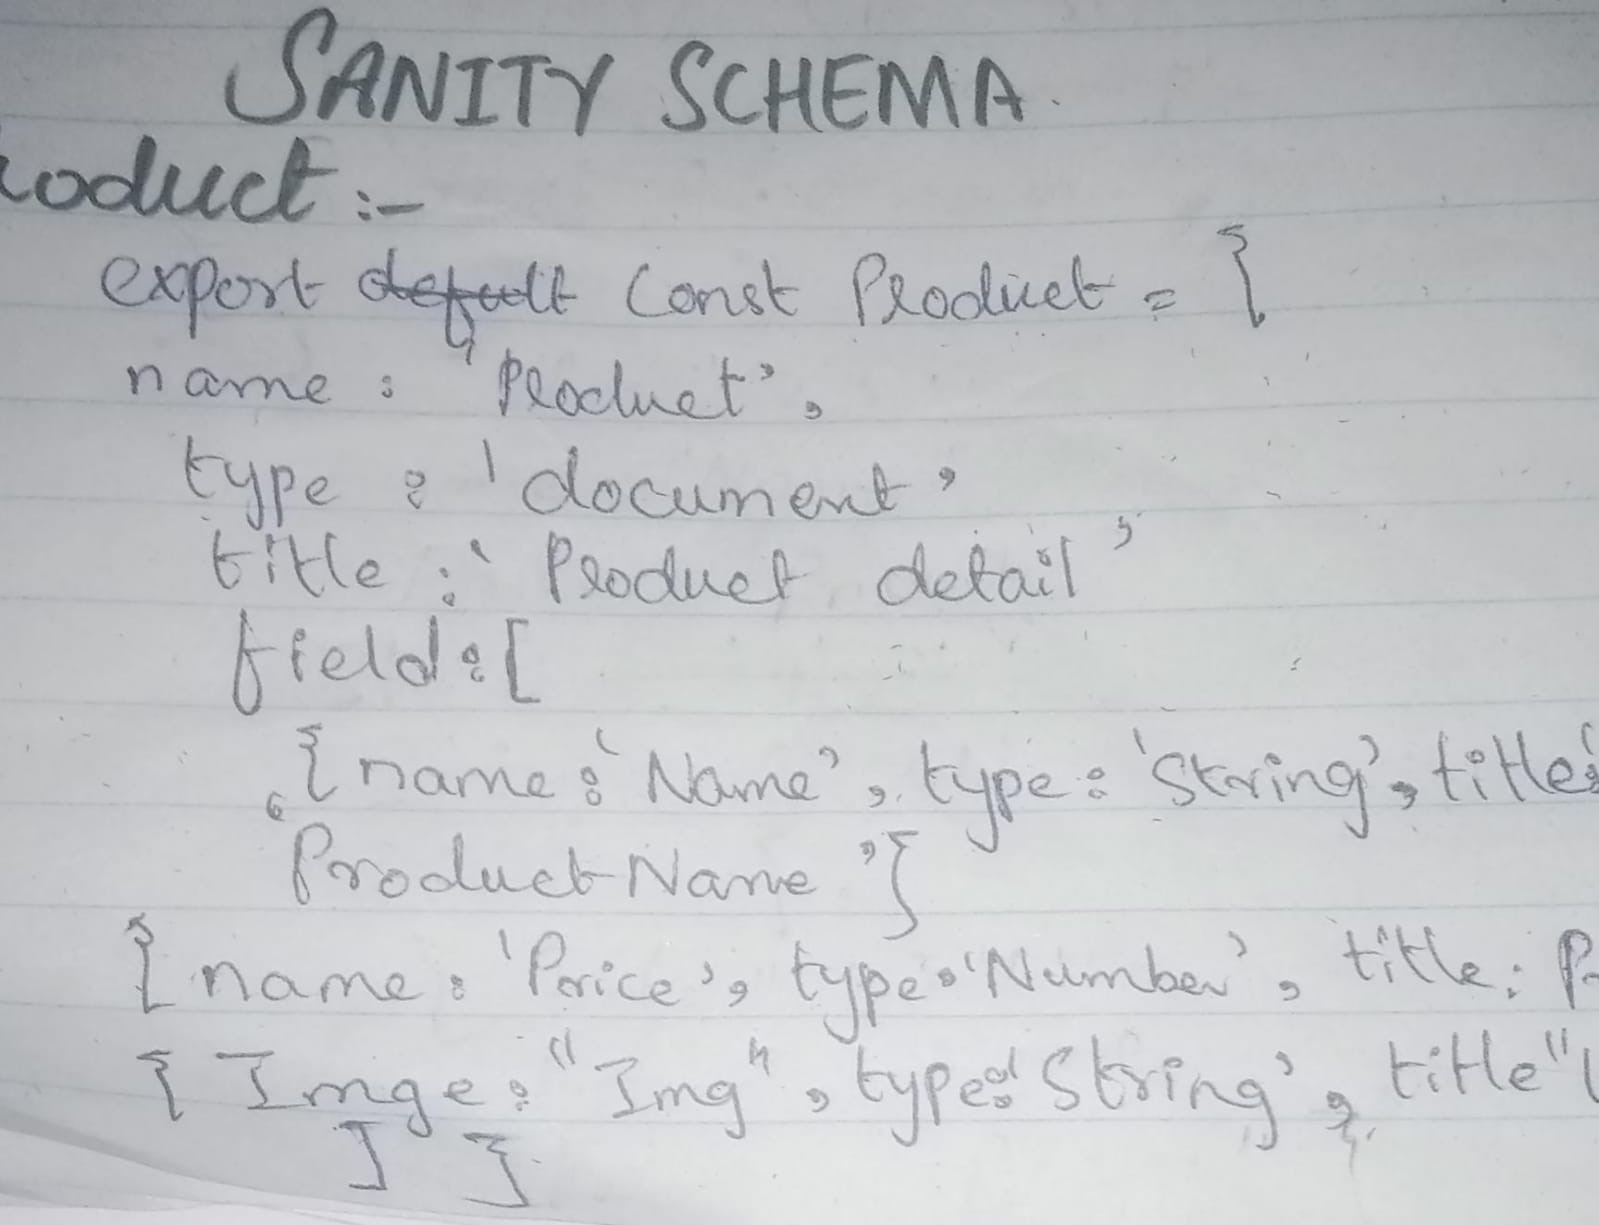 SANITY SCHEMA
roduct :-
export const Product = {
name : 'Product',
type : 'document'
title : 'Product detail'
field : [
{ name : 'Name', type : 'String', title :
'Product Name' }
{ name : 'Price', type : 'Number', title : P
{ Imge : "Img", type : 'String', title "
] }